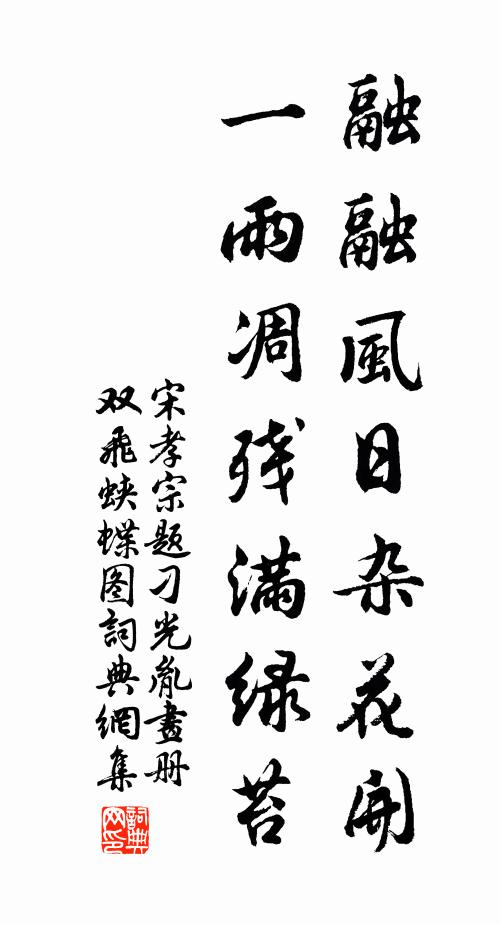 融融風日杂花開
一雨凋残滿绿苔
宋孝宗题刁光胤畫册
双飛蛱蝶图詞典網集
詞典
网印